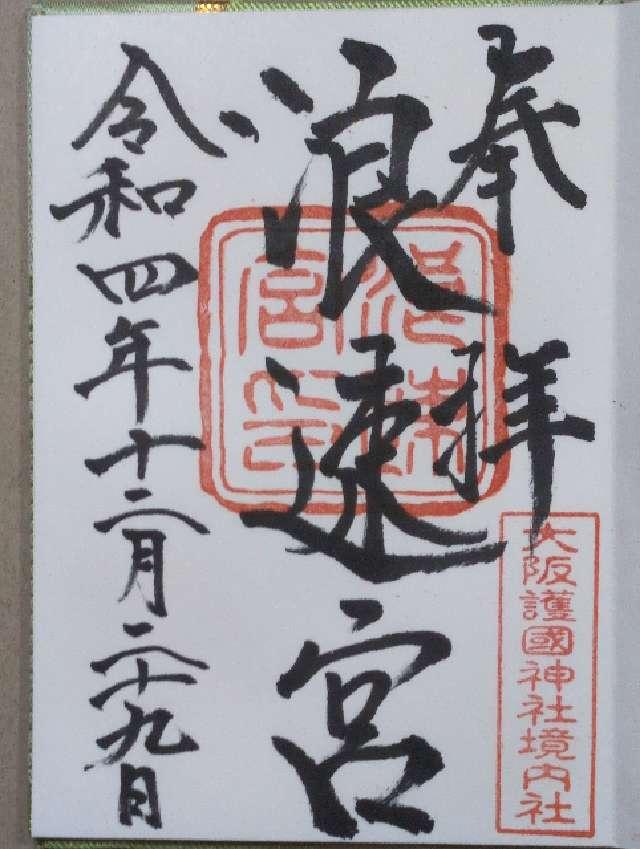 奉拝
大阪護國神社境内社
浪速宮
浪速宮印
令和四年十二月二十九日